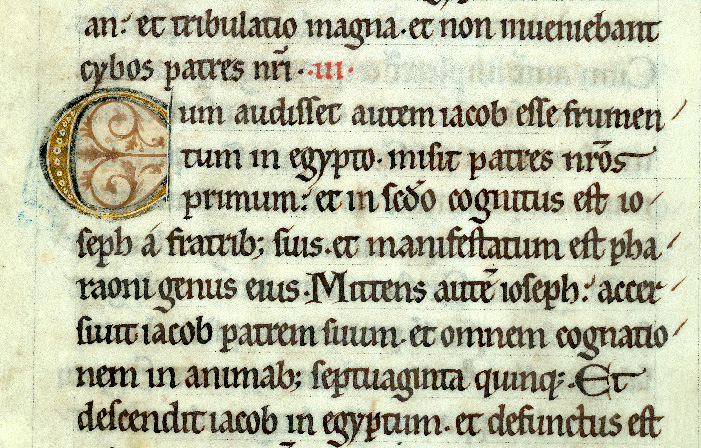 an: et tribulatio magna. et non inveniebant
cybos patres nr̅i. .iii.
Cum audisset autem iacob esse frumen
tum in egypto. misit patres nr̅os
primum: et in sc̅do cognitus est io
seph a fratrib; suis. et manifestatum est pha
raoni genus eius. Mittens aute̅ ioseph: accer
siuit iacob patrem suum. et omnem cognatio
nem in animab; septuaginta quinq;. Et
descendit iacob in egyptum. et defunctus est